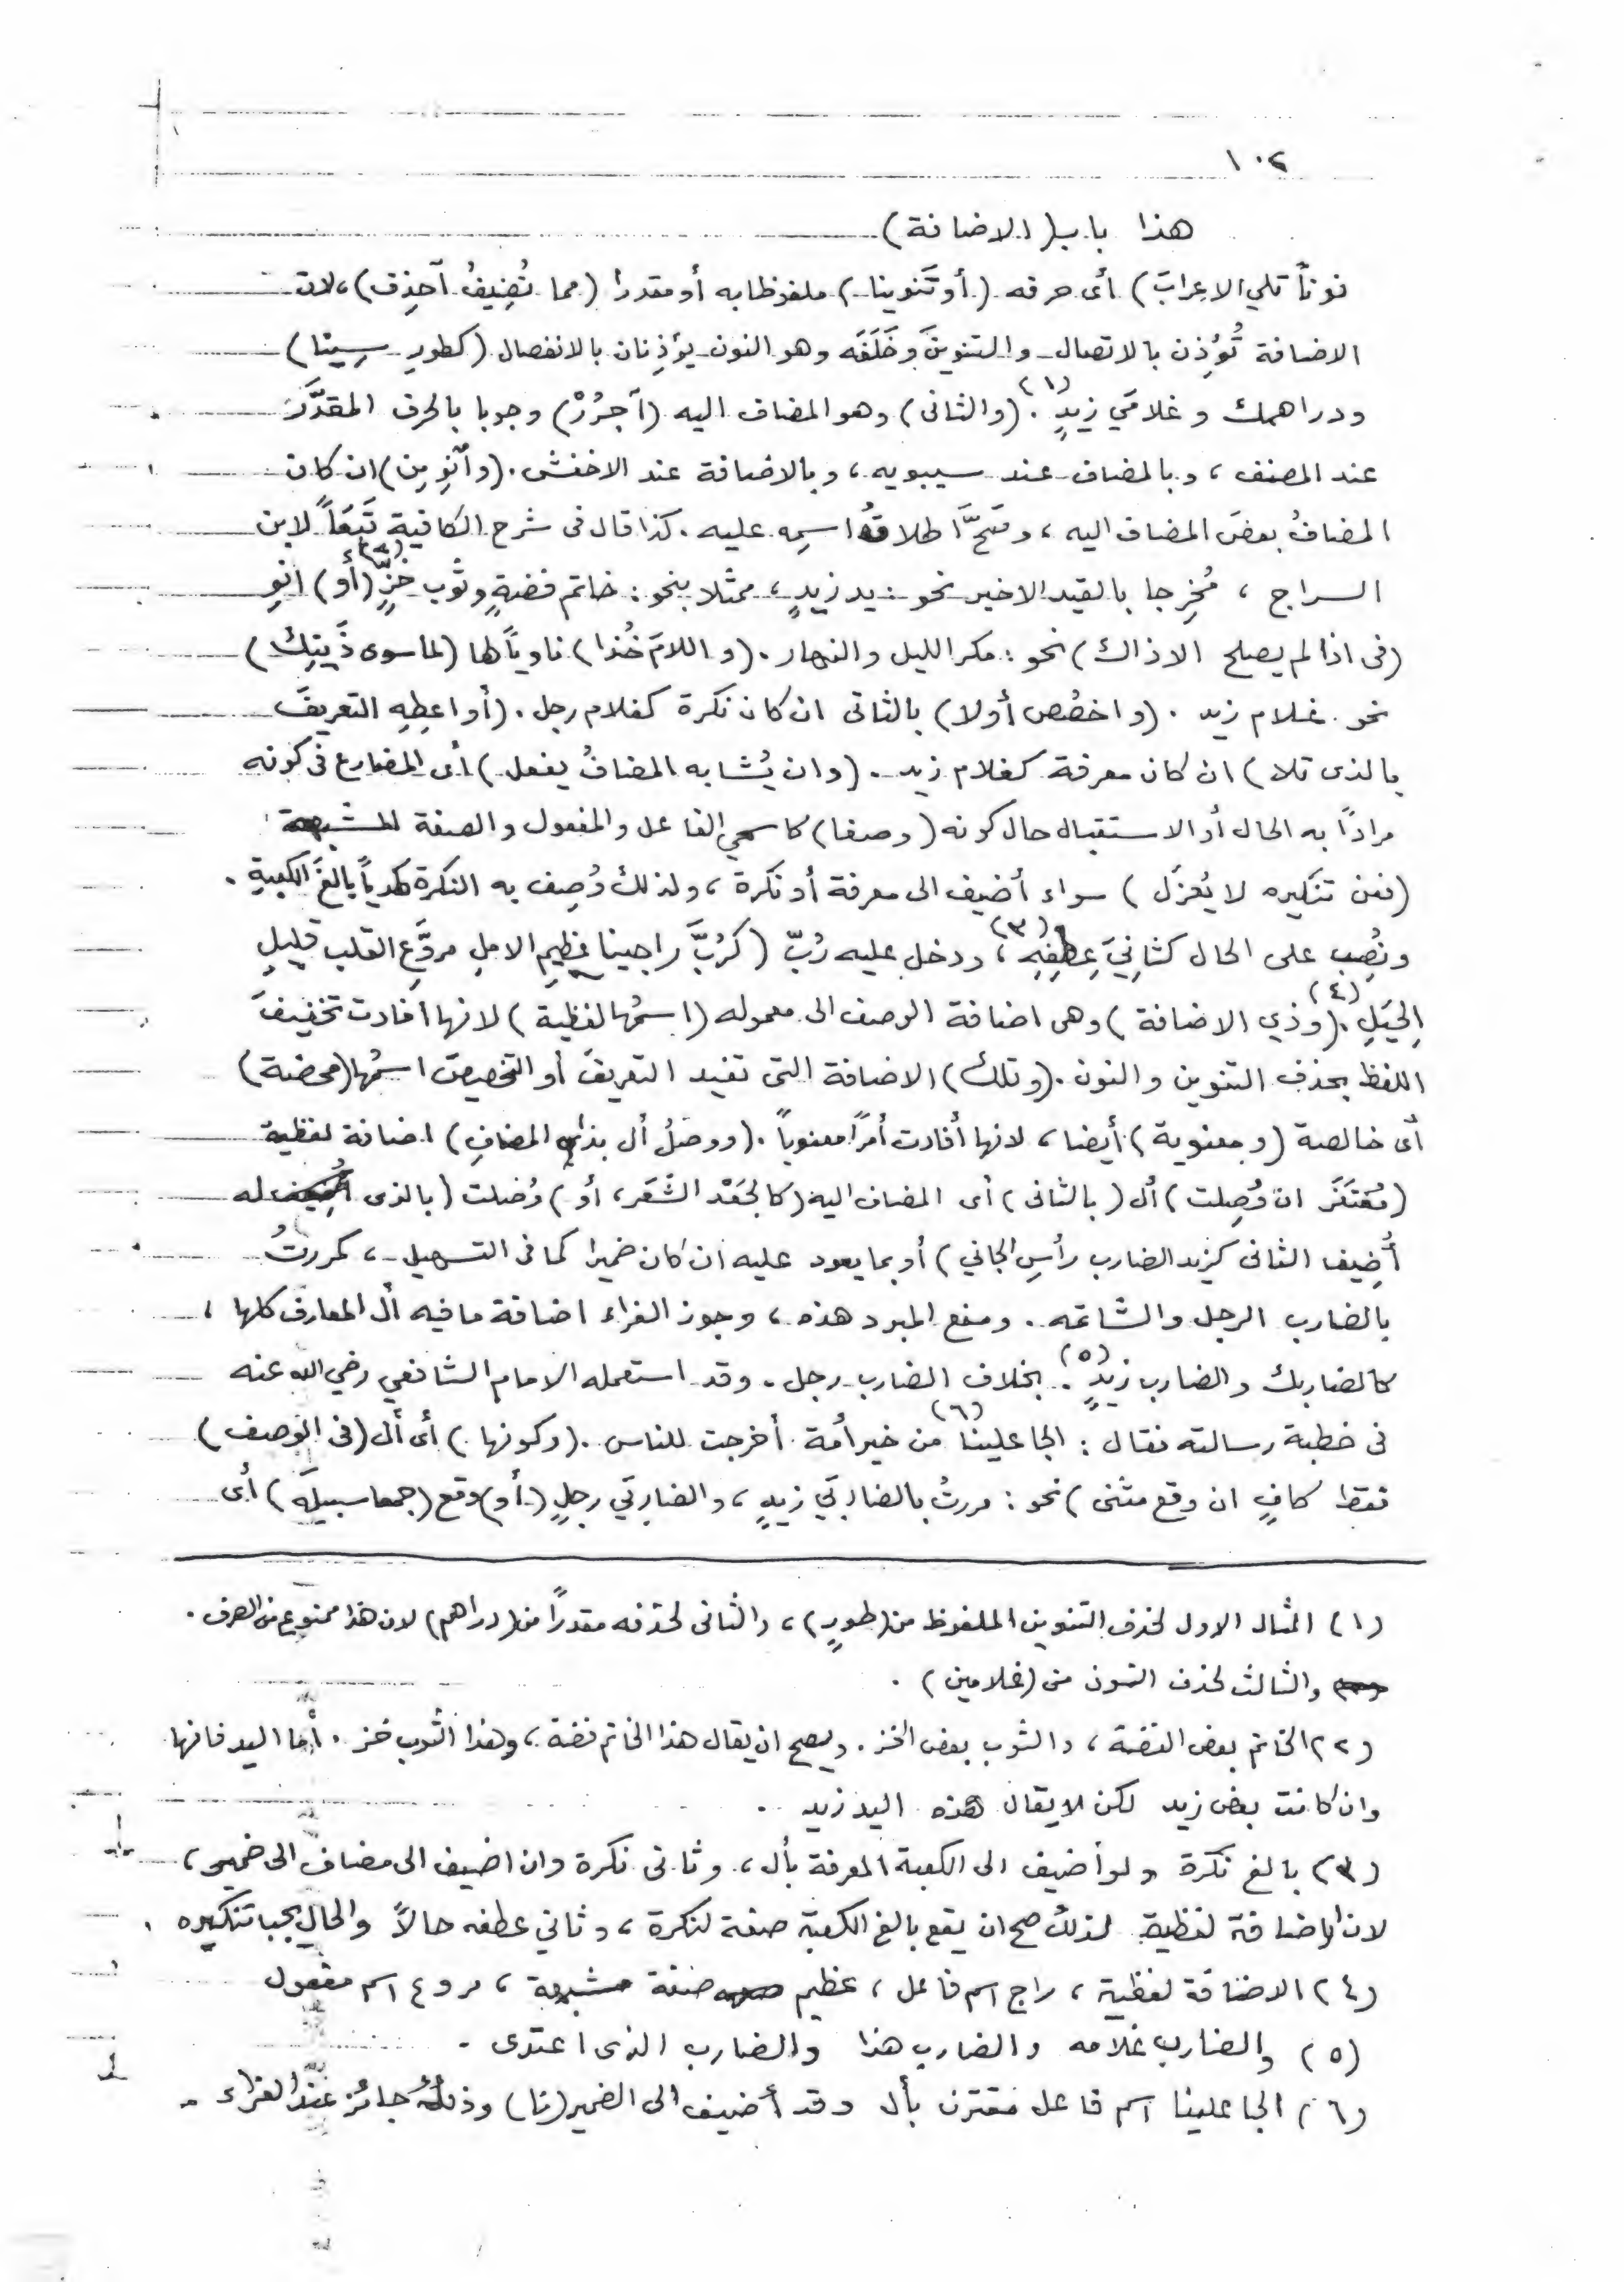 ١٠٢
هذا باب (الاضافة)
نوناً تلي الاعرابَ) أى حرفه (أو تَنوينا) ملفوظا به أو مقدرا (مما تُضِيفُ آحذِف)، لان
الاضافة تُؤذِن بالاتصال والتنوينَ وخَلَفَه وهو النون يؤذِنان بالانفصال (كطورِ سِينا)
ودراهمك وغلامَي زيدٍ (١). (والثانى) وهو المضاف اليه (آجرُرْ) وجوبا بالحرف المقدَّر
عند المصنف، وبالمضاف عند سيبويه، وبالاضافة عند الاخفش. (وآنوِ مِن) ان كان
المضافُ بعضَ المضاف اليه، وصَحَّ اطلاقُ اسمِه عليه. كذا قال فى شرح الكافية تَبَعاً لابن
السراج، مُخرِجا بالقيد الاخير نحو: يد زيدٍ، ممثلا بنحو: خاتم فضةٍ وثوب خَزٍّ (٢) (أو) انوِ
(فى اذا لم يصلح الا ذاك) نحو: مكر الليل والنهار. (واللامَ خُذا) ناوياً لها (لما سوى ذَينِك)
نحو غلام زيد. (واخصُص أولا) بالثانى ان كان نكرة كغلام رجل. (أو اعطِهِ التعريفَ
بالذى تلا) ان كان معرفة كغلام زيد. (وان يُشابه المضافُ يفعل) أى المضارع فى كونه
مراداً به الحال أو الاستقبال حال كونه (وصفا) كاسمي الفاعل والمفعول والصفة المشبهة
(فعن تنكيره لا يُعزَل) سواء أضيف الى معرفة أو نكرة، ولذلك وُصِف به النكرة كهدياً بالغَ الكعبةِ.
ونُصِب على الحال كثانِيَ عِطفِهِ (٣)، ودخل عليه رُبّ (كرُبَّ راجينا عظيمِ الاملِ مروَّعِ القلب قليلِ
الحِيَلِ (٤). (وذي الاضافة) وهى اضافة الوصف الى معموله (اسمُها لفظية) لانها افادت تخفيفَ
اللفظ بحذف التنوين والنون. (وتلك) الاضافة التى تفيد التعريفَ أو التخصيصَ اسمُها (محضة)
أى خالصة (ومعنوية) أيضا، لانها أفادت أمراً معنوياً. (ووصلُ أل بذا المضافِ) اضافة لفظية
(مُغتَفَر ان وُصِلت) أل (بالثانى) أى المضاف اليه (كالجَعْد الشَّعَر، أو) وُصلت (بالذى له
أُضِيف الثانى كزيد الضارب رأسِ الجاني) أو بما يعود عليه ان كان ضميرا كما فى التسهيل، كمررتُ
بالضارب الرجل والشاتمه. ومنع المبرد هذه، وجوز الفراء اضافة ما فيه أل المعارف كلها،
كالضاربك والضارب زيدٍ (٥). بخلاف الضارب رجل. وقد استعمله الامام الشافعي رضي الله عنه
فى خطبة رسالته فقال: الجاعلينا (٦) من خير أمة أخرجت للناس. (وكونها) أى أل (فى الوصف)
فقط كافٍ ان وقع مثنى) نحو: مررتُ بالضاربَي زيدٍ، والضاربَي رجلٍ (أو) وقع (جمعا سبيلَه) أى
(١) المثال الاول لحذف التنوين الملفوظ من (طورٍ)، والثانى لحذفه مقدراً من (دراهم) لان هذا ممنوع من الصرف.
والثالث لحذف النون من (غلامين).
(٢) الخاتم بعض الفضة، والثوب بعض الخز. ويصح ان يقال هذا الخاتم فضة، وهذا الثوب خز. أما اليد فانها
وان كانت بعض زيد لكن لا يقال هذه اليد زيد.
(٣) بالغ نكرة ولو أضيف الى الكعبة المعرفة بأل، وثانى نكرة وان اضيف الى مضاف الى ضمير،
لان الاضافة لفظية. لذلك صح ان يقع بالغ الكعبة صفة لنكرة، وثاني عطفه حالاً والحال يجب تنكيره.
(٤) الاضافة لفظية، راج اسم فاعل، عظيم صفة مشبهة، مروع اسم مفعول
(٥) والضارب غلامه والضارب هذا والضارب الذى اعتدى.
(٦) الجاعلينا اسم فاعل مقترن بأل وقد أضيف الى الضمير (نا) وذلك جائز عند الفراء.